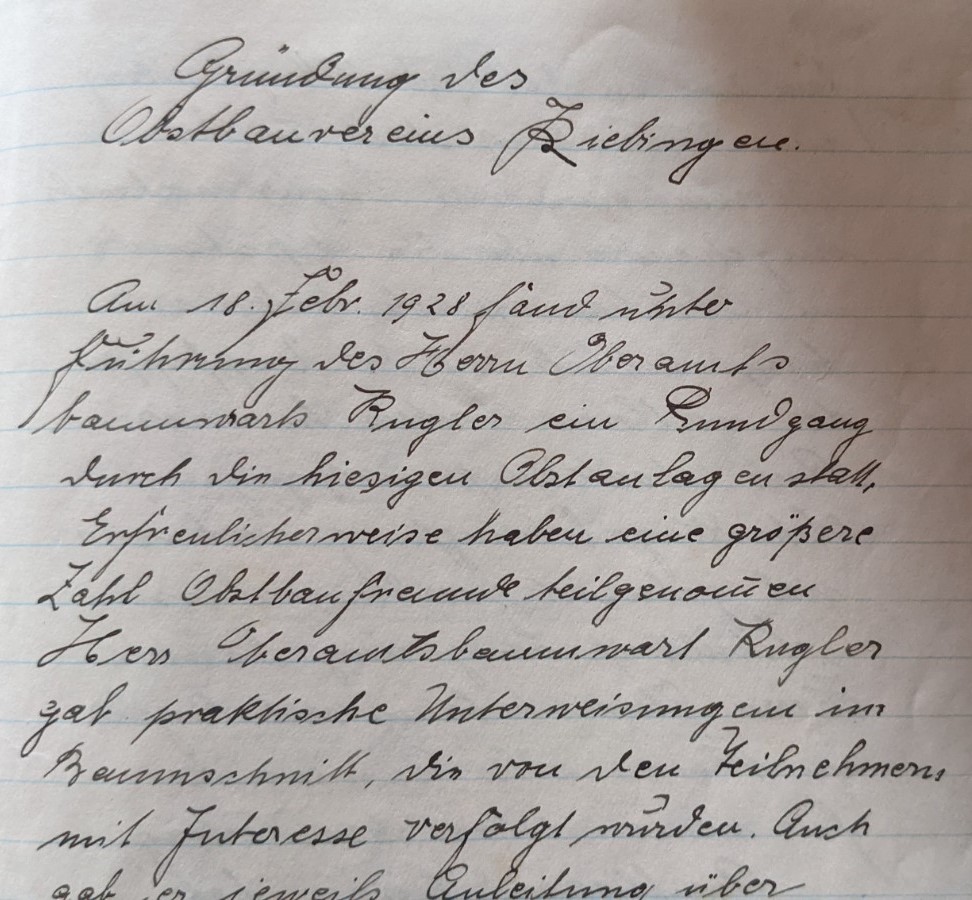 Gründung des
Obstbauvereins Kiebingen.
Am 18. Febr. 1928 fand unter
Führung des Herrn Oberamts
baumwarts Kugler ein Rundgang
durch die hiesigen Obstanlagen statt,
Erfreulicherweise haben eine größere
Zahl Obstbaufreunde teilgenom̅en
Herr Oberamtsbaumwart Kugler
gab praktische Unterweisungen im
Baumschnitt, die von den Teilnehmern,
mit Interesse verfolgt wurden. Auch
gab er jeweils Anleitung über